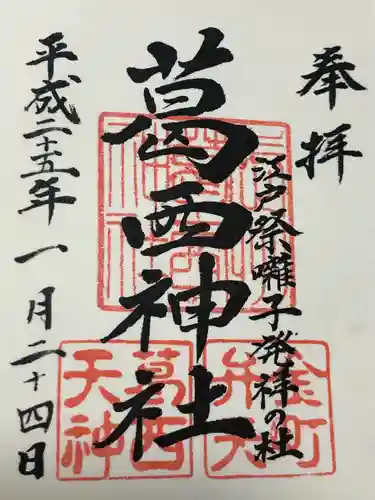 奉拝
江戸祭囃子発祥の社
葛西神社
平成二十五年一月二十四日
葛西天神
金町弁天